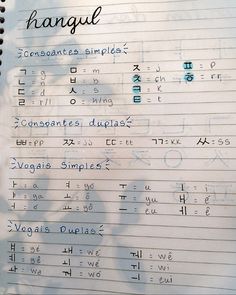 hangul
Consoantes simples
ㄱ = g ㅁ = m ㅈ = j ㅍ = p
ㄴ = n ㅂ = b ㅊ = ch ㅎ = rr
ㄷ = d ㅅ = s ㅋ = k
ㄹ = r/l ㅇ = ng ㅌ = t
Consoantes duplas
ㅃ = pp ㅉ = jj ㄸ = tt ㄲ = kk ㅆ = ss
Vogais Simples
ㅏ = a ㅕ = yó ㅜ = u ㅣ = i
ㅑ = ya ㅗ = ô ㅠ = yu ㅐ = é
ㅓ = ó ㅛ = yô ㅡ = eu ㅔ = ê
Vogais Duplas
ㅒ = yé ㅙ = wé ㅞ = wê
ㅖ = yê ㅚ = wê ㅟ = wi
ㅘ = wa ㅝ = wó ㅢ = eui